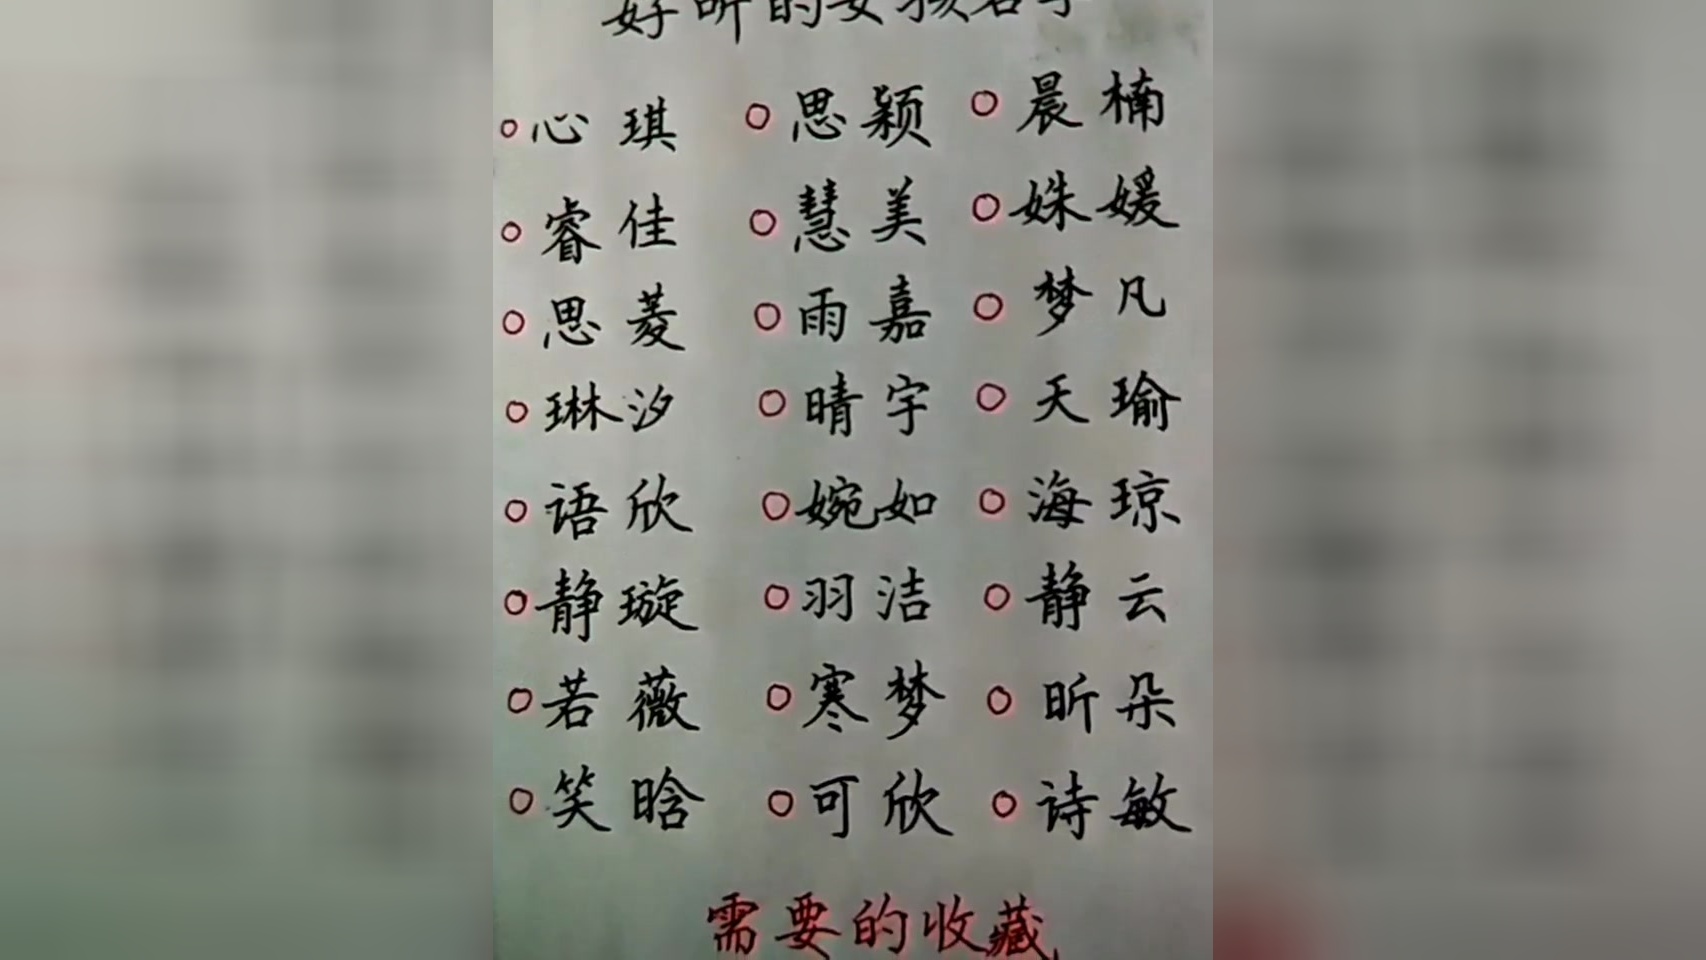 好听的女孩名字
心琪 思颖 晨楠
睿佳 慧美 姝媛
思菱 雨嘉 梦凡
琳汐 晴宇 天瑜
语欣 婉如 海琼
静璇 羽洁 静云
若薇 寒梦 昕朵
笑晗 可欣 诗敏
需要的收藏